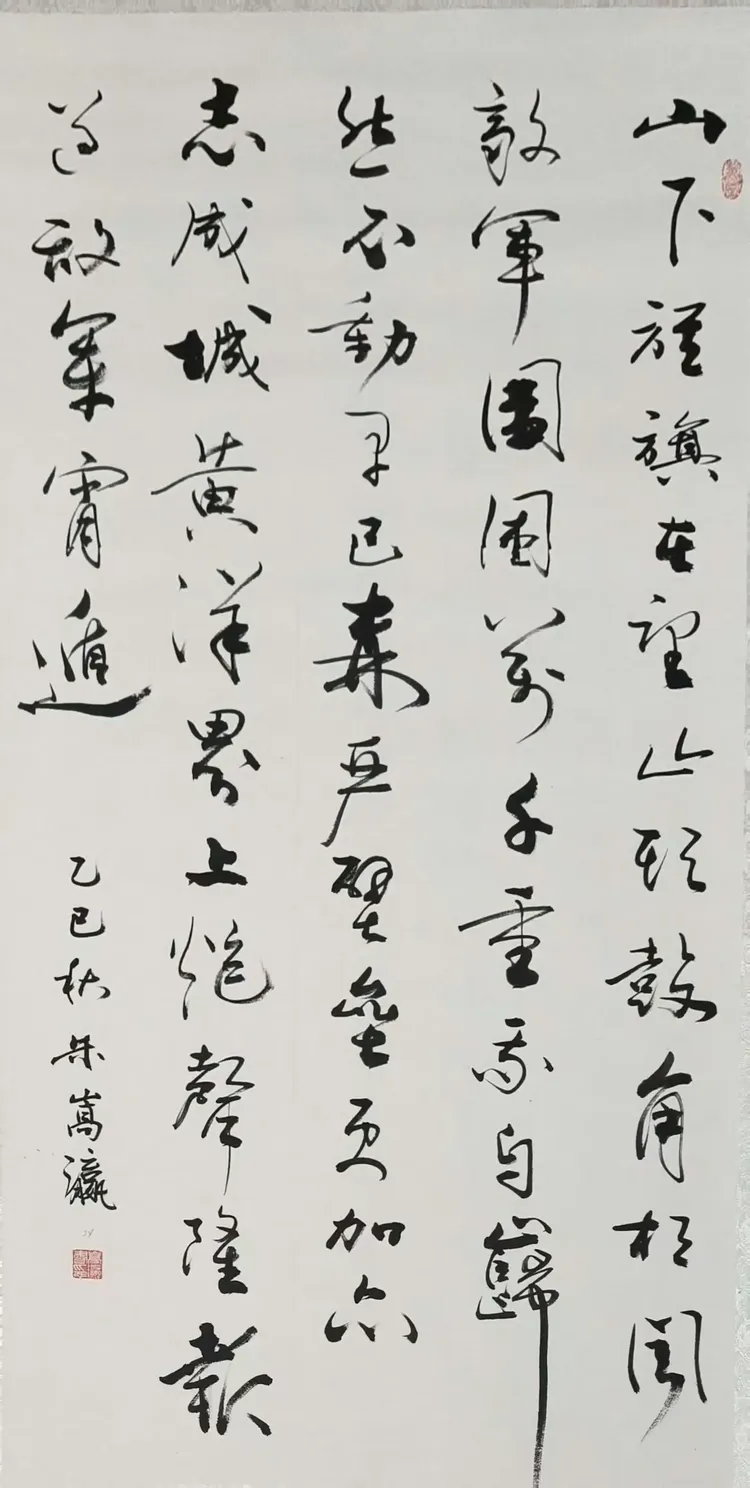 山下旌旗在望山頭鼓角相聞
敵軍圍困萬千重我自巋
然不動早已森严壁壘更加众
志成城黄洋界上炮聲隆報
道敌軍宵遁
乙巳秋朱嵩瀛